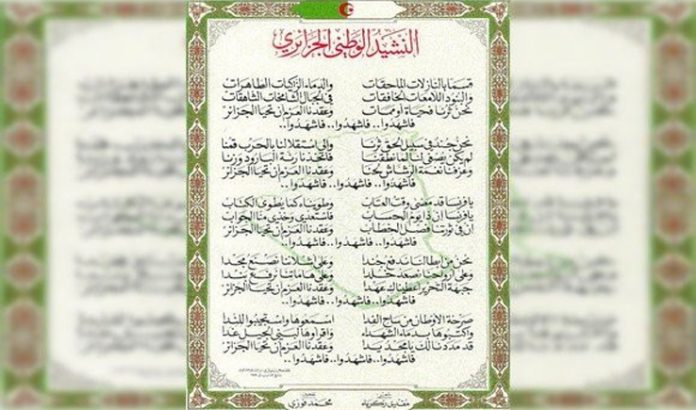 النشيد الوطني الجزائري
قسما بالنازلات الماحقات والدماء الزاكيات الطاهرات
والبنود اللامعات الخافقات في الجبال الشامخات الشاهقات
نحن ثرنا فحياة أو ممات وعقدنا العزم أن تحيا الجزائر
فاشهدوا.. فاشهدوا.. فاشهدوا..
نحن جند في سبيل الحق ثرنا وإلى استقلالنا بالحرب قمنا
لم يكن يصغى لنا لما نطقنا فاتخذنا رنة البارود وزنا
وعزفنا نغمة الرشاش لحنا وعقدنا العزم أن تحيا الجزائر
فاشهدوا.. فاشهدوا.. فاشهدوا..
يا فرنسا قد مضى وقت العتاب وطويناه كما يطوى الكتاب
يا فرنسا إن ذا يوم الحساب فاستعدي وخذي منا الجواب
إن في ثورتنا فصل الخطاب وعقدنا العزم أن تحيا الجزائر
فاشهدوا.. فاشهدوا.. فاشهدوا..
نحن من أبطالنا ندفع جندا وعلى أشلائنا نصنع مجدا
وعلى أرواحنا نصعد خلدا وعلى هاماتنا نرفع بندا
جبهة التحرير أعطيناك عهدا وعقدنا العزم أن تحيا الجزائر
فاشهدوا.. فاشهدوا.. فاشهدوا..
صرخة الأوطان من ساح الفدا اسمعوها واستجيبوا للندا
واكتبوها بدماء الشهداء واقرأوها لبني الجيل غدا
قد مددنا لك يا مجد يدا وعقدنا العزم أن تحيا الجزائر
فاشهدوا.. فاشهدوا.. فاشهدوا..
مفدي زكرياء محمد فوزي